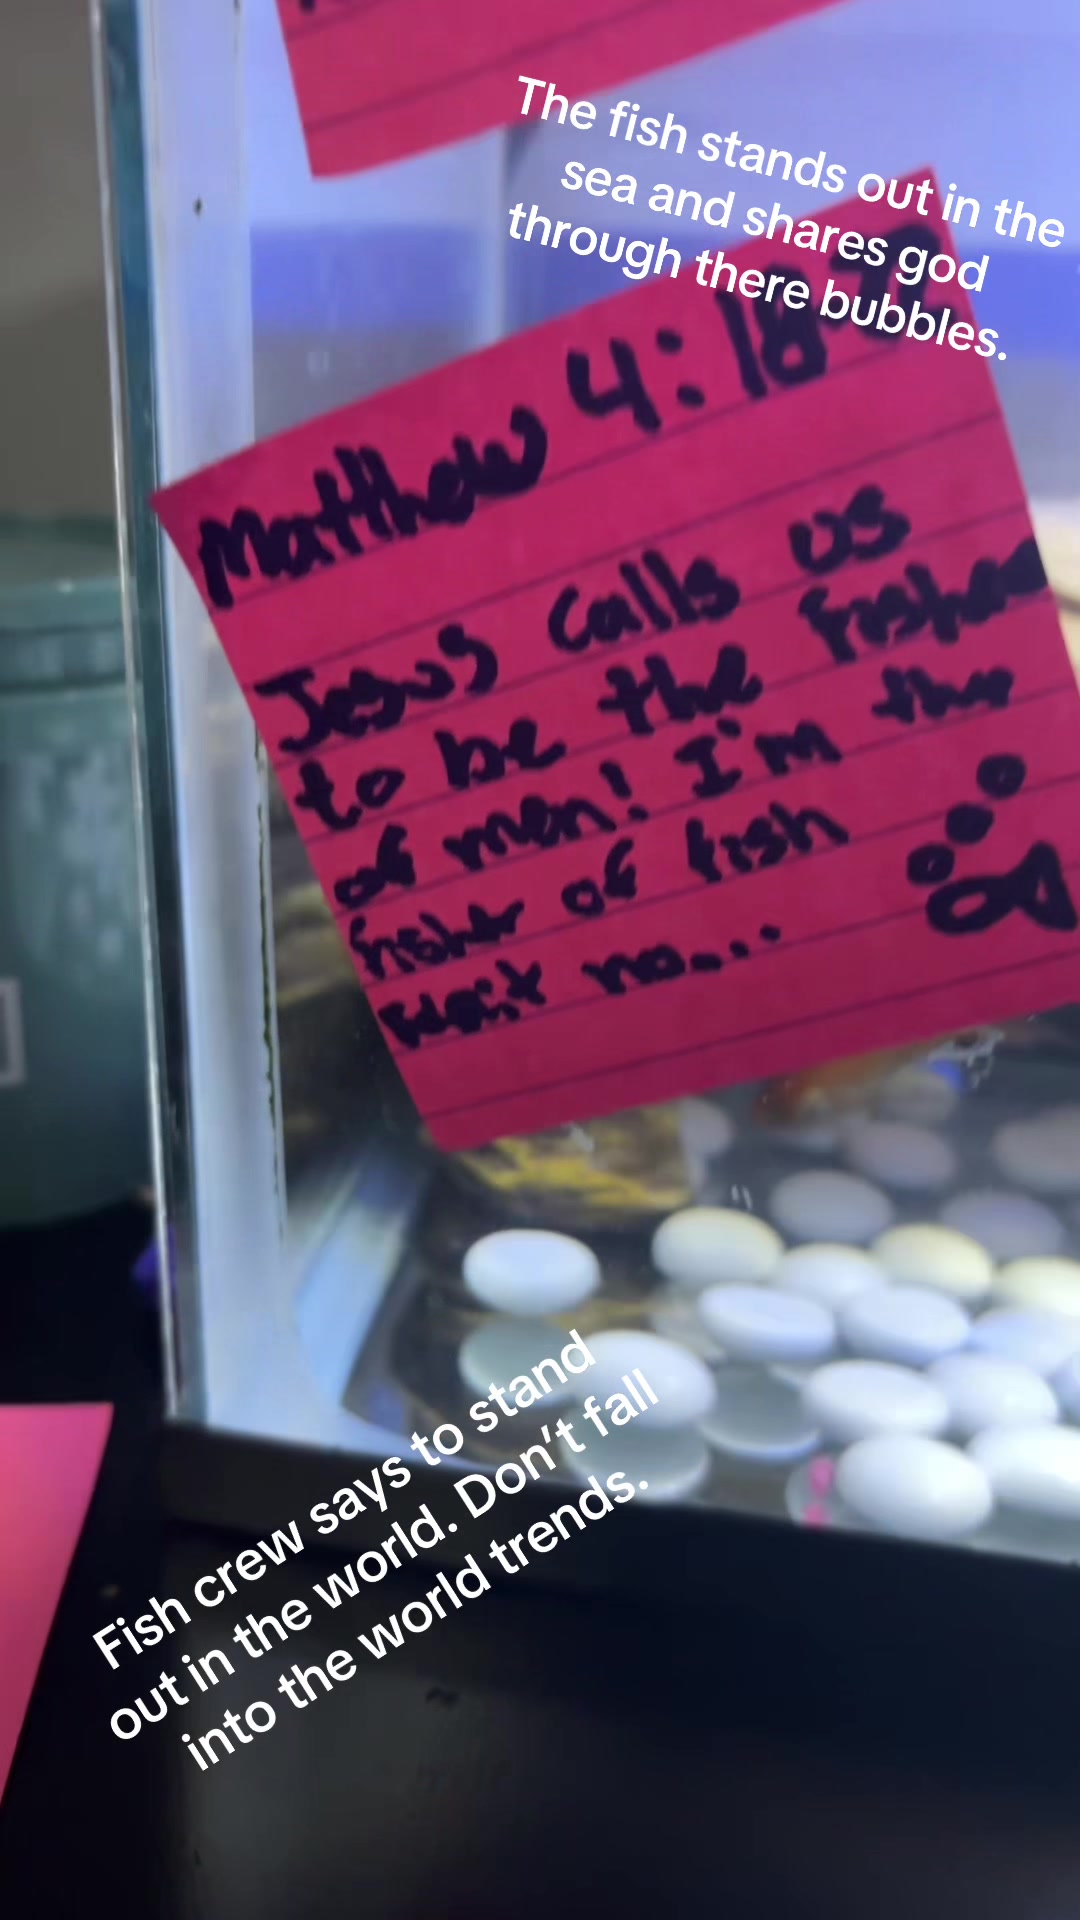 The fish stands out in the
sea and shares god
through there bubbles.
Matthew 4:18-
Jesus calls us
to be the
of men! I'm the
fisher of fish
wait no...
Fish crew says to stand
out in the world. Don't fall
into the world trends.